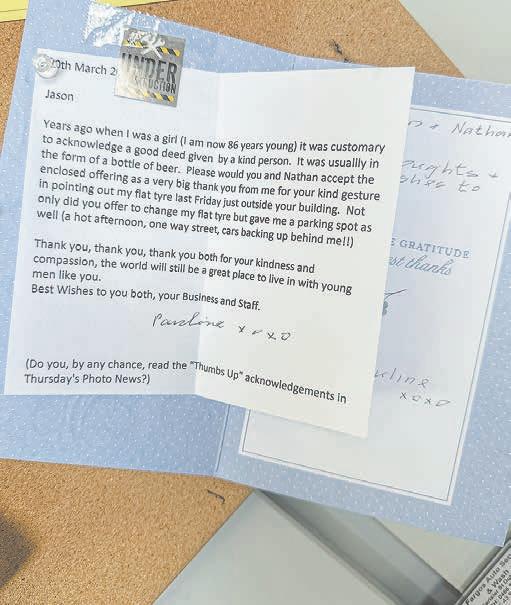 UNDER
CONSTRUCTION
20th March
Jason
Years ago when I was a girl (I am now 86 years young) it was customary
to acknowledge a good deed given by a kind person. It was usuallly in
the form of a bottle of beer. Please would you and Nathan accept the
enclosed offering as a very big thank you from me for your kind gesture
in pointing out my flat tyre last Friday just outside your building. Not
only did you offer to change my flat tyre but gave me a parking spot as
well (a hot afternoon, one way street, cars backing up behind me!!)
Thank you, thank you, thank you both for your kindness and
compassion, the world will still be a great place to live in with young
men like you.
Best Wishes to you both, your Business and Staff.
Pauline x x x o
(Do you, by any chance, read the "Thumbs Up" acknowledgements in
Thursday's Photo News?)
+ Nathan
+
to
GRATITUDE
thanks
xoxo
Fargos Auto
& Wash